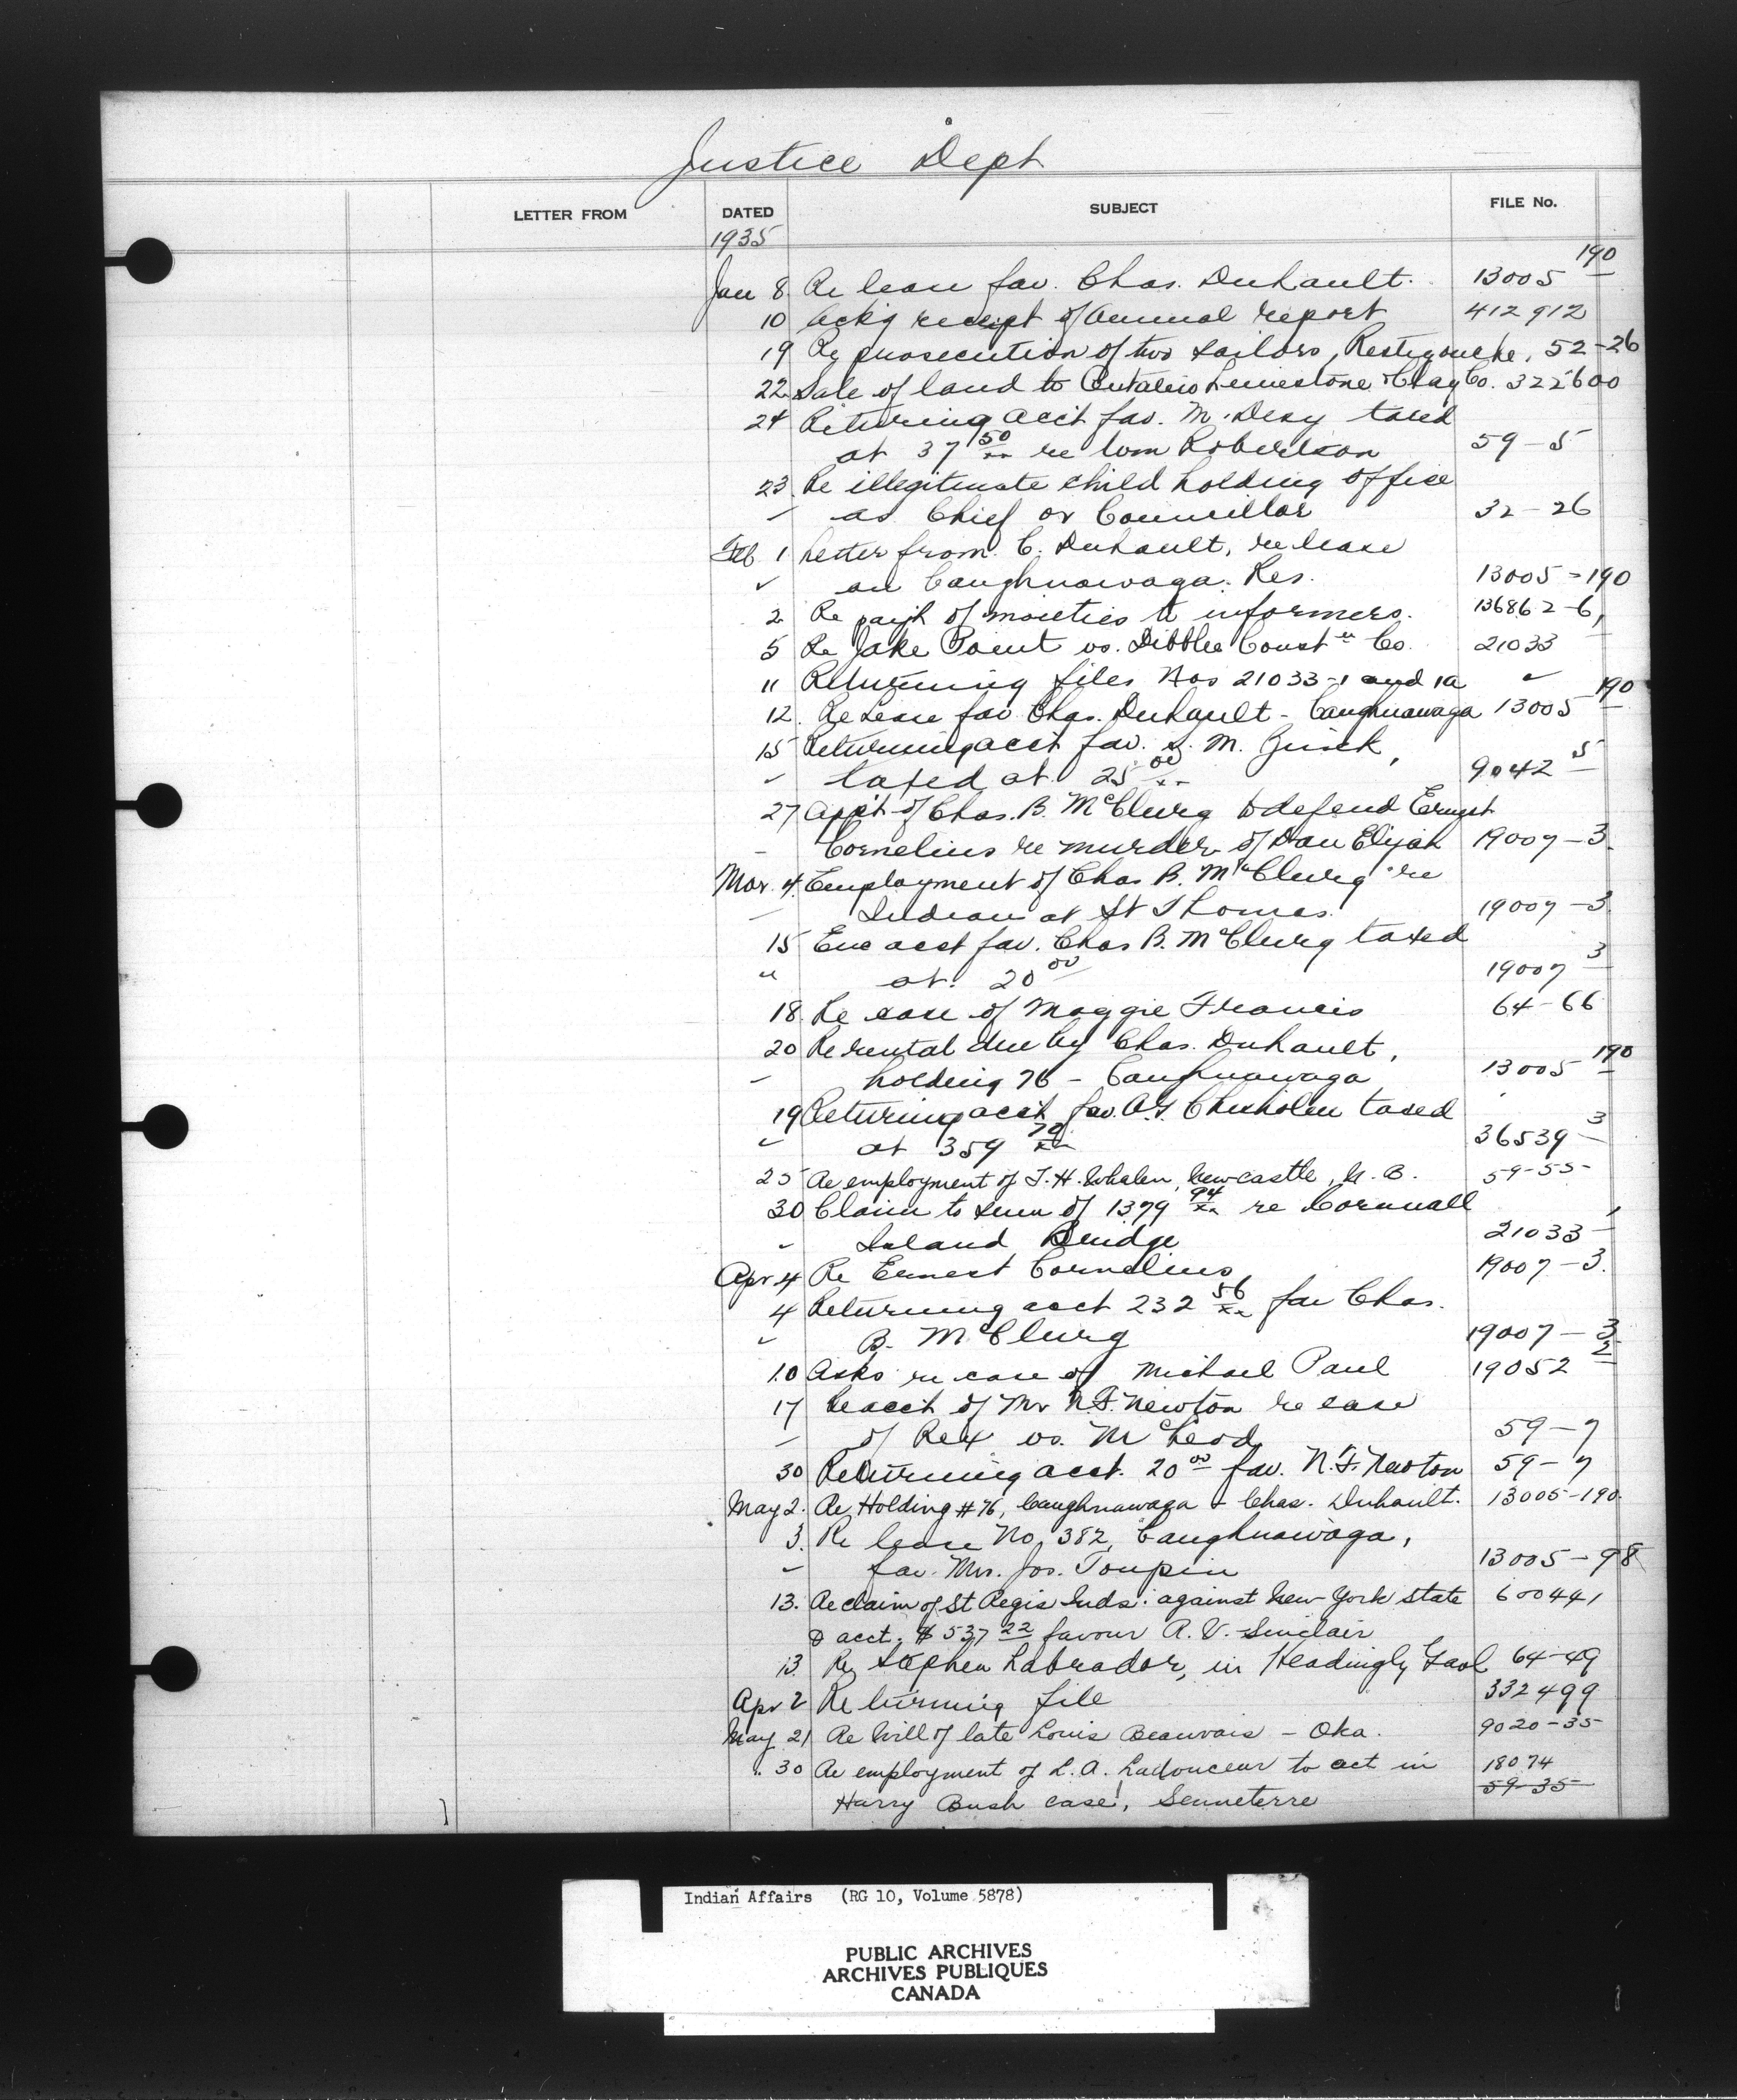 Justice Dept
LETTER FROM DATED SUBJECT FILE No.
1935
Jan 8 Re lease fav. Chas. Duhault. 13005 190
10 Ackg receipt of Annual report 412912
19 Re prosecution of two sailors, Restigouche, 52-26
22 Sale of land to Ontario Limestone & Clay Co. 322600
24 Returning acct fav. M. Desy taxed
at 37 50/xx re Wm Robertson 59-5
23 Re illegitimate child holding office
" as Chief or Councillor 32-26
Feb 1 Letter from C. Duhault, re lease
" on Caughnawaga Res. 13005-190
2 Re payt of moieties to informers. 136862-6,
5 Re Jake Point vs. Dibblee Constn Co. 21033
11 Returning files Nos 21033-1 and 1a "
12. Re Lease fav Chas. Duhault - Caughnawaga 13005 190
15 Returning acct fav. S. M.
" taxed at 25 00/xx 9042 5
27 Appt of Chas. B. McClurg to defend Ernest
" Cornelius re murder of Dan Elijah 19007-3
Mar. 4. Employment of Chas B. McClurg re
" Indian at St Thomas. 19007-3
15 Enc acct fav. Chas B. McClurg taxed
" at 20 00 19007 3
18. Re case of Maggie Francis 64-66
20 Re rental due by Chas. Duhault,
" holding 76 - Caughnawaga 13005 190
19 Returning acct fav. A.G. Chisholm taxed
" at 359 70/xx 36539 3
25 Re employment of T. H. Whalen, Newcastle, N. B. 59-55
30 Claim to sum of 1379 94/xx re Cornwall
" Island Bridge 21033-1
Apr 4 Re Ernest Cornelius 19007-3.
4 Returning acct 232 56/xx fav Chas.
" B. McClurg 19007-3
10 Asks re case of Michael Paul 19052 2
17 Re acct of Mr N.F. Newton re case
" of Rex vs. McLeod 59-7
30 Returning acct. 20 00 fav. N.F. Newton 59-7
May 2. Re Holding #76, Caughnawaga - Chas. Duhault. 13005-190.
3. Re lease No. 382, Caughnawaga,
" fav. Mrs. Jos. Toupin 13005-98
13. Re claim of St Regis Inds. against New York State 600441
& acct. $537 22 favour R. V. Sinclair
13. Re Stephen Labrador, in Headingly Gaol 64-49
Apr 2 Returning file 332499
May 21 Re Will of late Louis Beauvais - Oka. 9020-35
" 30 Re employment of L. A. Ladouceur to act in 18074
Harry Bush case, Senneterre 59-35
Indian Affairs (RG 10, Volume 5878)
PUBLIC ARCHIVES
ARCHIVES PUBLIQUES
CANADA